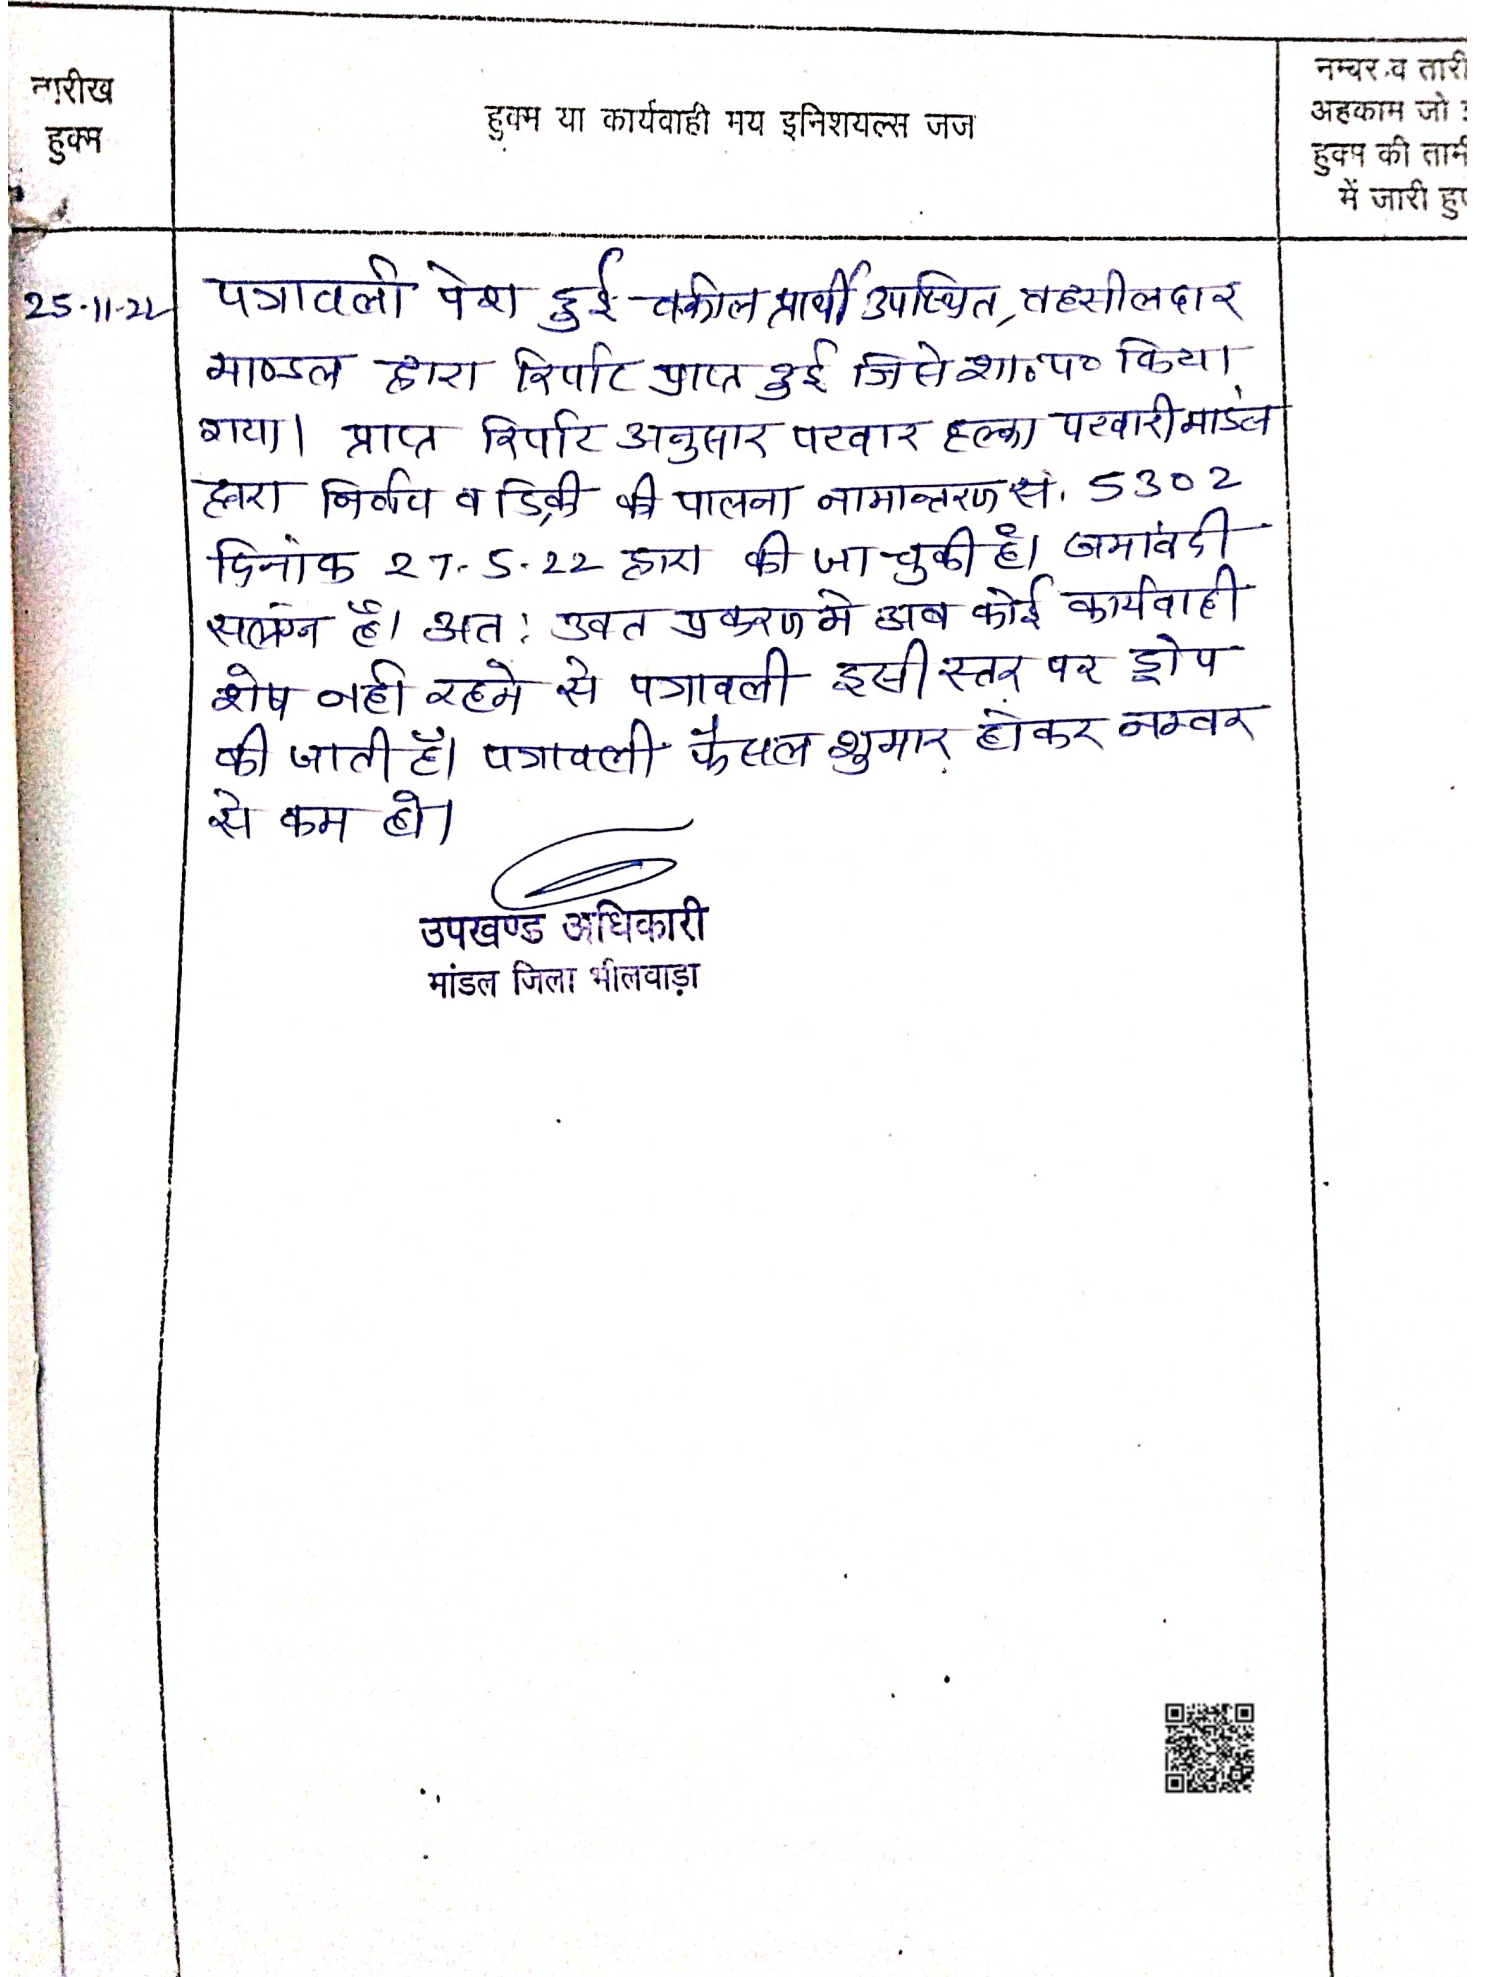 तारीख
हुक्म
हुक्म या कार्यवाही मय इनिशयल्स जज
नम्बर व तारी
अहकाम जो
हुक्म की तामी
में जारी हुए
25-11-22
पत्रावली पेश हुई वकील प्रार्थी उपस्थित, तहसीलदार
माण्डल द्वारा रिर्पाट प्राप्त हुई जिसे शा०प० किया
गया। प्राप्त रिर्पाट अनुसार पटवार हल्का पटवारी मांडल
द्वारा निर्णय व डिक्री की पालना नामान्तरण सं. 5302
दिनांक 27-5-22 द्वारा की जा चुकी है। जमांबदी
सलंग्न है। अत: उक्त प्रकरण मे अब कोई कार्यवाही
शेष नही रहने से पत्रावली इसी स्तर पर ड्रोप
की जाती है। पत्रावली फैसल शुमार होकर नम्बर
से कम हो।
उपखण्ड अधिकारी
मांडल जिला भीलवाड़ा